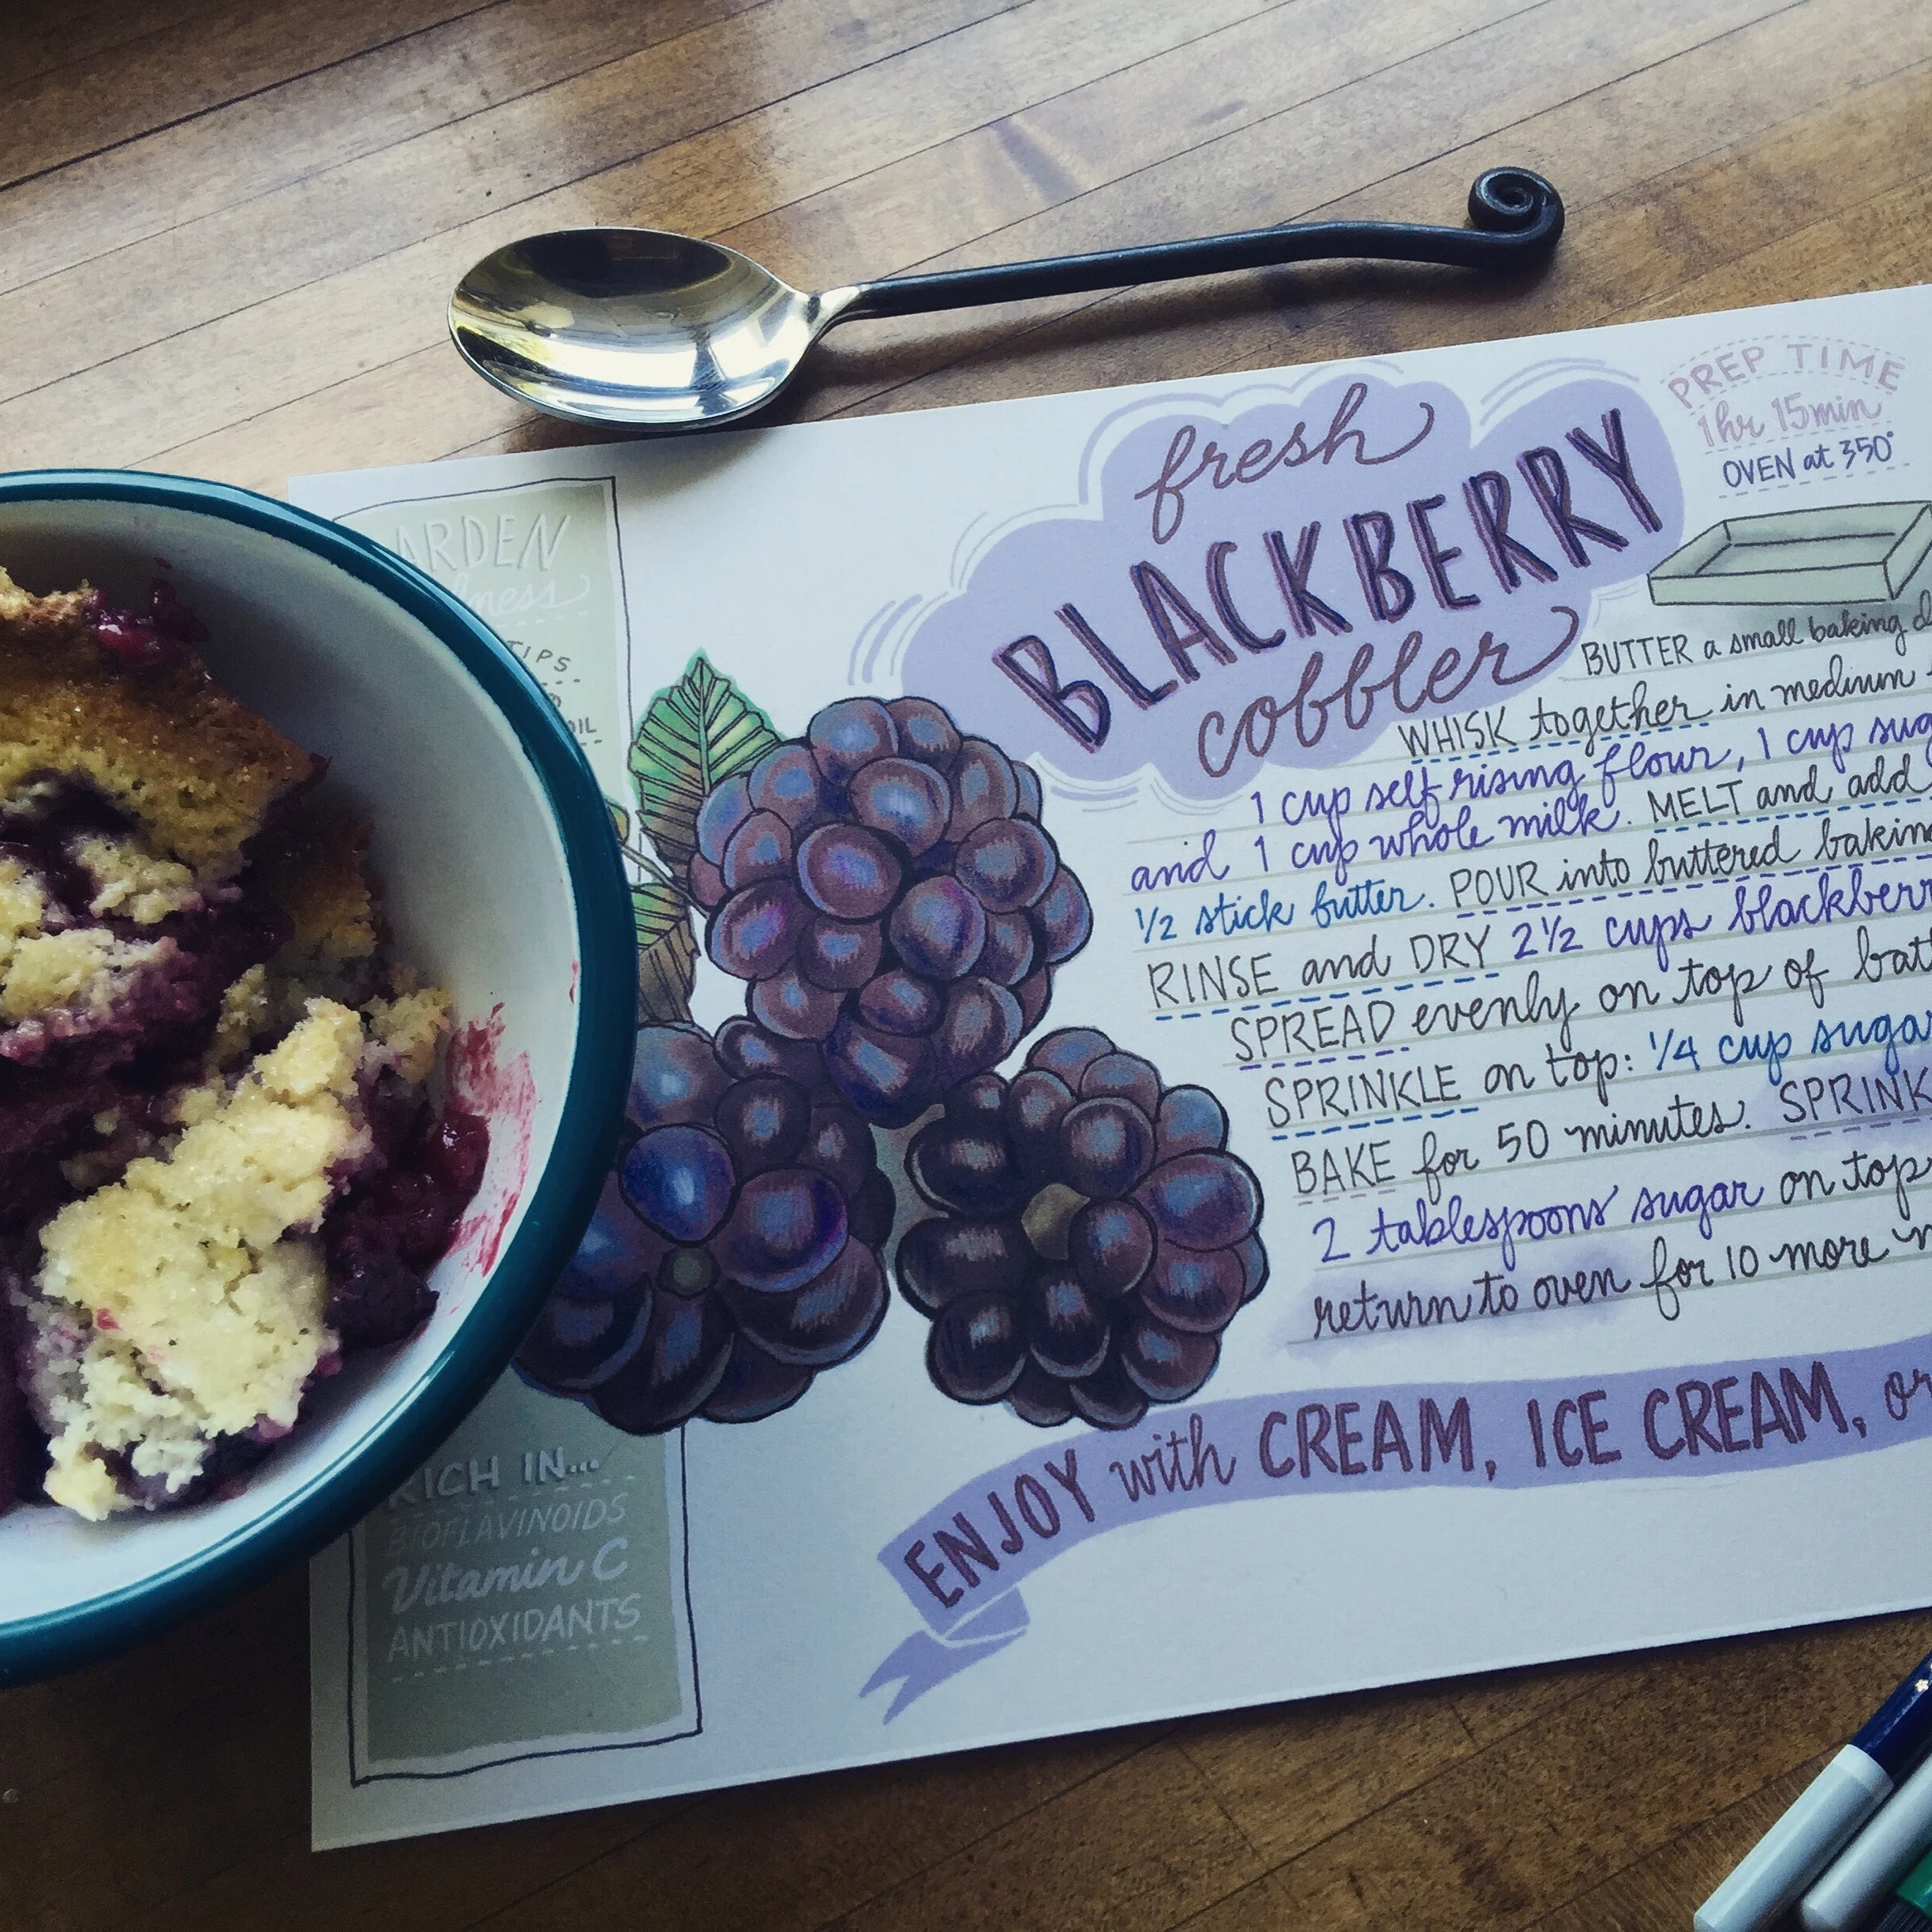 fresh
BLACKBERRY
cobbler
PREP TIME
1 hr 15 min
OVEN at 350°
BUTTER a small baking
WHISK together in medium
1 cup self rising flour, 1 cup
and 1 cup whole milk. MELT and add
1/2 stick butter. POUR into buttered
RINSE and DRY 2 1/2 cups
SPREAD evenly on top of
SPRINKLE on top: 1/4 cup sugar
BAKE for 50 minutes.
2 tablespoons sugar on top
return to oven for 10 more
ENJOY with CREAM, ICE CREAM, or
TIPS
RICH IN...
BIOFLAVINOIDS
Vitamin C
ANTIOXIDANTS